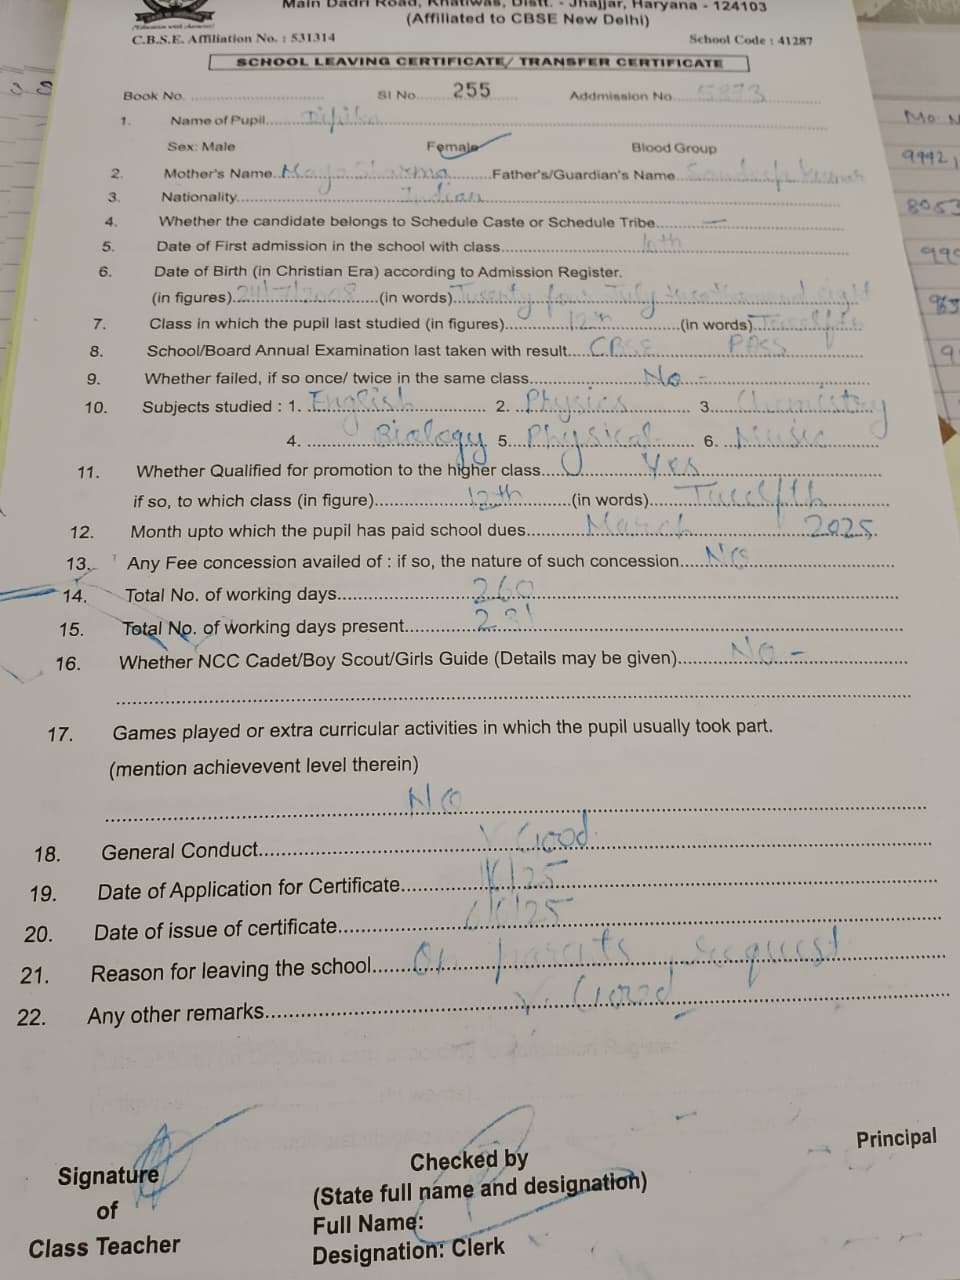 Main Dadri Road, Khatiwas, Distt. - Jhajjar, Haryana - 124103
(Affiliated to CBSE New Delhi)
C.B.S.E. Affiliation No. : 531314 School Code : 41287
SCHOOL LEAVING CERTIFICATE/ TRANSFER CERTIFICATE
Book No. Sl No. 255 Addmission No.
1. Name of Pupil
Sex: Male Female Blood Group
2. Mother's Name Sharma Father's/Guardian's Name
3. Nationality Indian
4. Whether the candidate belongs to Schedule Caste or Schedule Tribe
5. Date of First admission in the school with class
6. Date of Birth (in Christian Era) according to Admission Register.
(in figures) 24/7/2008 (in words) Twenty four July
7. Class in which the pupil last studied (in figures) 12th (in words) Twelfth
8. School/Board Annual Examination last taken with result CBSE PASS
9. Whether failed, if so once/ twice in the same class No -
10. Subjects studied : 1. English 2. Physics 3. Chemistry
4. Biology 5. Physical 6. Music
11. Whether Qualified for promotion to the higher class Yes
if so, to which class (in figure) 12th (in words) Twelfth
12. Month upto which the pupil has paid school dues March 2025
13. Any Fee concession availed of : if so, the nature of such concession No
14. Total No. of working days 260
15. Total No. of working days present
16. Whether NCC Cadet/Boy Scout/Girls Guide (Details may be given) No -
17. Games played or extra curricular activities in which the pupil usually took part.
(mention achievevent level therein)
No
18. General Conduct V Good
19. Date of Application for Certificate
20. Date of issue of certificate
21. Reason for leaving the school On parents request
22. Any other remarks V. Good
Principal
Signature Checked by
of (State full name and designation)
Full Name:
Class Teacher Designation: Clerk